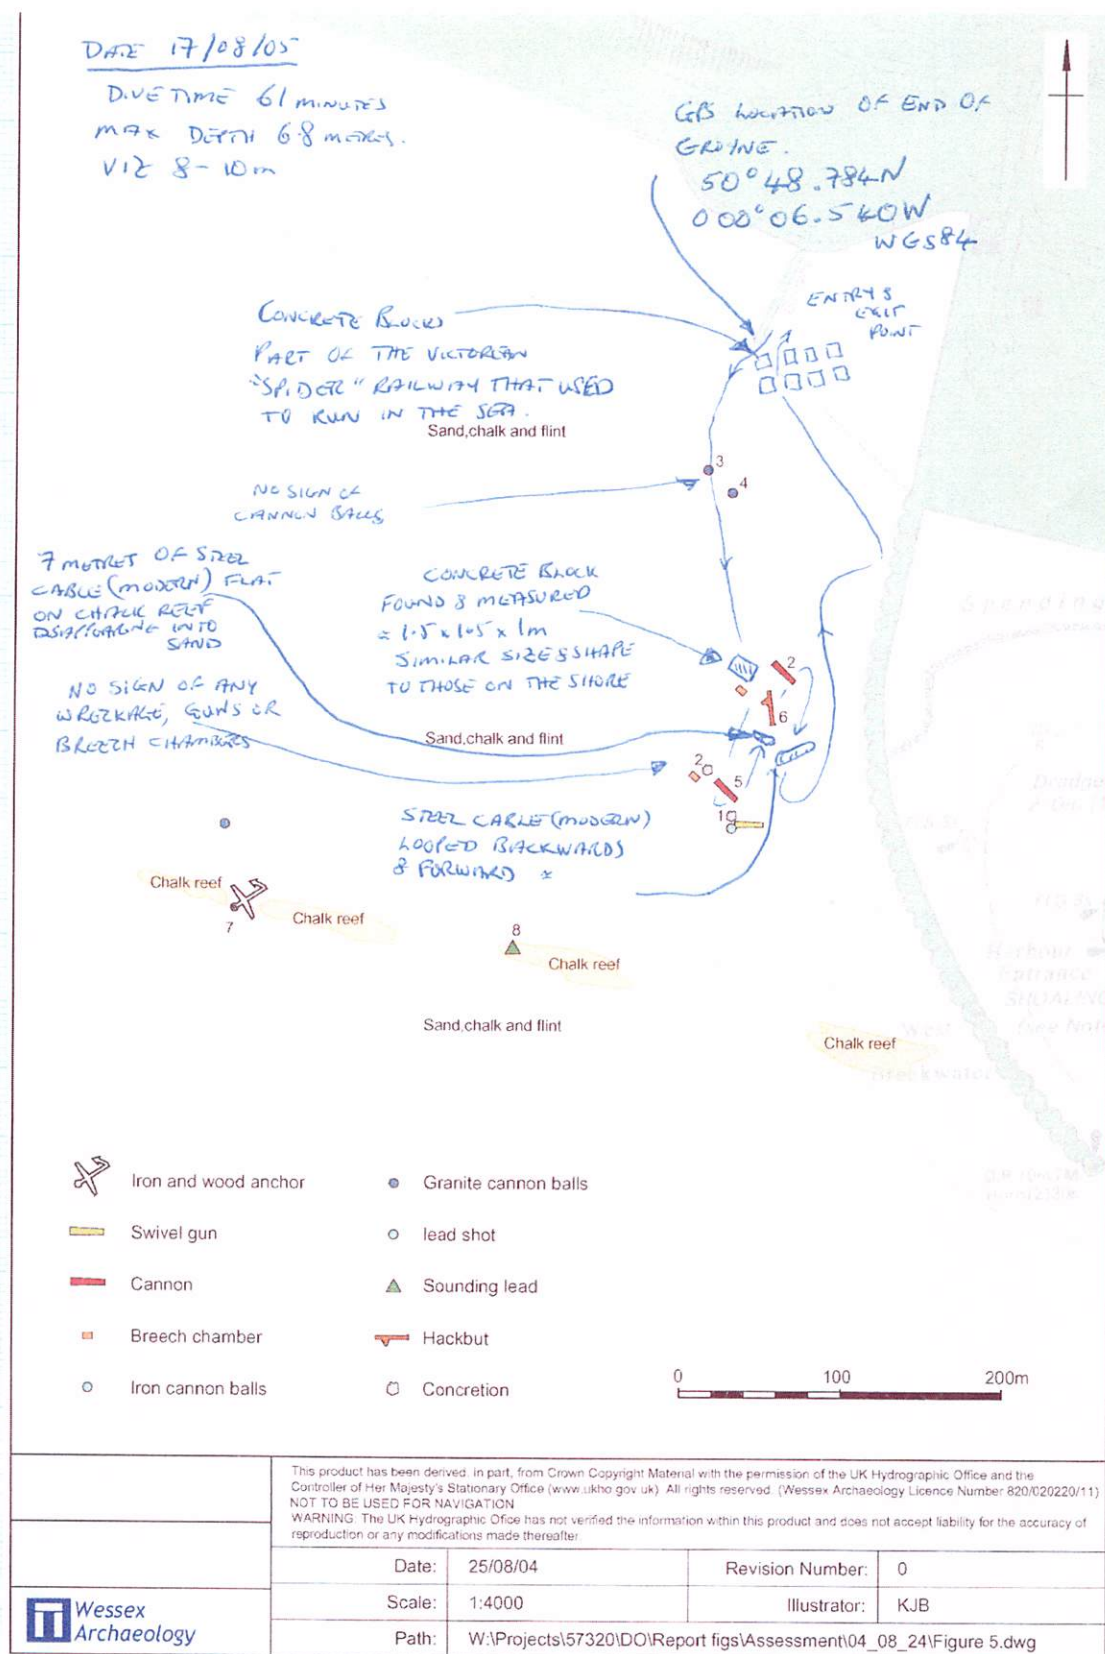 DATE 17/08/05
DIVE TIME 61 MINUTES
MAX DEPTH 6.8 METRES.
VIZ 8-10m
GPS LOCATION OF END OF
GROYNE.
50°48.784N
000°06.540W
WGS84
ENTRY &
EXIT
POINT
CONCRETE BLOCKS
PART OF THE VICTORIAN
"SPIDER" RAILWAY THAT USED
TO RUN IN THE SEA.
Sand,chalk and flint
3
4
NO SIGN OF
CANNON BALLS
7 METRES OF STEEL
CABLE (MODERN) FLAT
ON CHALK REEF
DISAPPEARING INTO
SAND
CONCRETE BLOCK
FOUND & MEASURED
≈ 1.5 x 1.5 x 1m
SIMILAR SIZE & SHAPE
TO THOSE ON THE SHORE
2
6
NO SIGN OF ANY
WRECKAGE, GUNS OR
BREECH CHAMBERS
Sand,chalk and flint
2
5
1
STEEL CABLE (MODERN)
LOOPED BACKWARDS
& FORWARD
Spending
Harbour
Entrance
(see Note
West
Breakwater
Chalk reef
7
Chalk reef
8
Chalk reef
Sand,chalk and flint
Chalk reef
Iron and wood anchor
Granite cannon balls
Swivel gun
lead shot
Cannon
Sounding lead
Breech chamber
Hackbut
Iron cannon balls
Concretion
0 100 200m
This product has been derived, in part, from Crown Copyright Material with the permission of the UK Hydrographic Office and the
Controller of Her Majesty's Stationary Office (www.ukho.gov.uk) All rights reserved. (Wessex Archaeology Licence Number 820/020220/11)
NOT TO BE USED FOR NAVIGATION
WARNING: The UK Hydrographic Ofice has not verified the information within this product and does not accept liability for the accuracy of
reproduction or any modifications made thereafter.
Date: 25/08/04 Revision Number: 0
Scale: 1:4000 Illustrator: KJB
Path: W:\Projects\57320\DO\Report figs\Assessment\04_08_24\Figure 5.dwg
Wessex
Archaeology